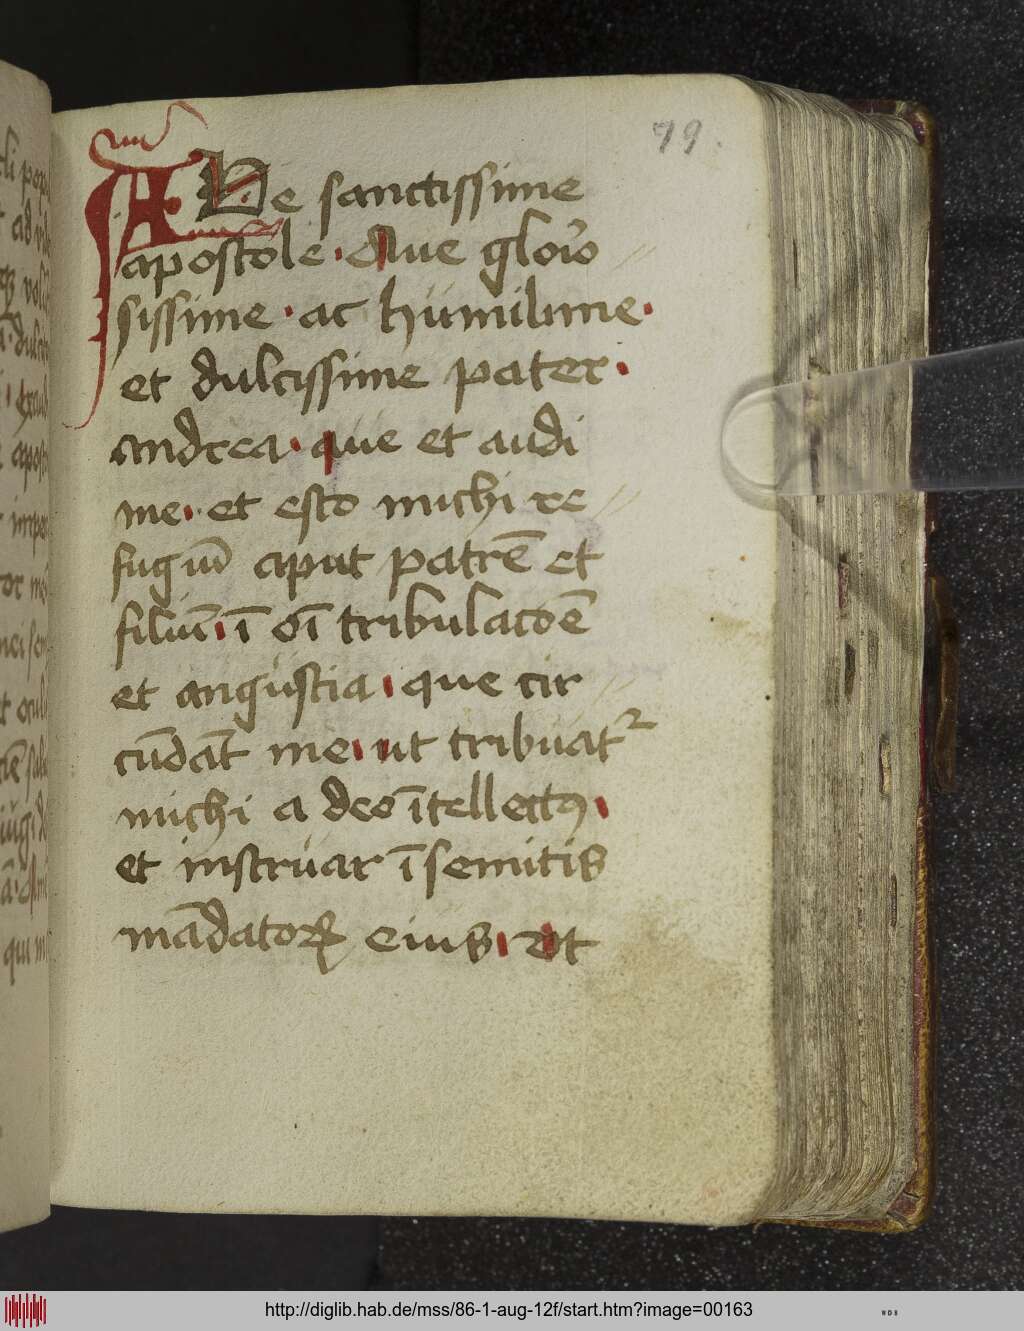 79.
AVe sanctissime
apostole · Aue glorio
sissime · ac humilime ·
et dulcissime pater ·
andrea · aue et audi
me · et esto michi re
fugiū aput patrē et
filiū · ī oī tribulacōē
et angustia · que cir
cūdāt me · ut tribuat᷑
michi a deo ītellectꝰ ·
et instruar ī semitis
mādatoꝝ eius · Et
http://diglib.hab.de/mss/86-1-aug-12f/start.htm?image=00163